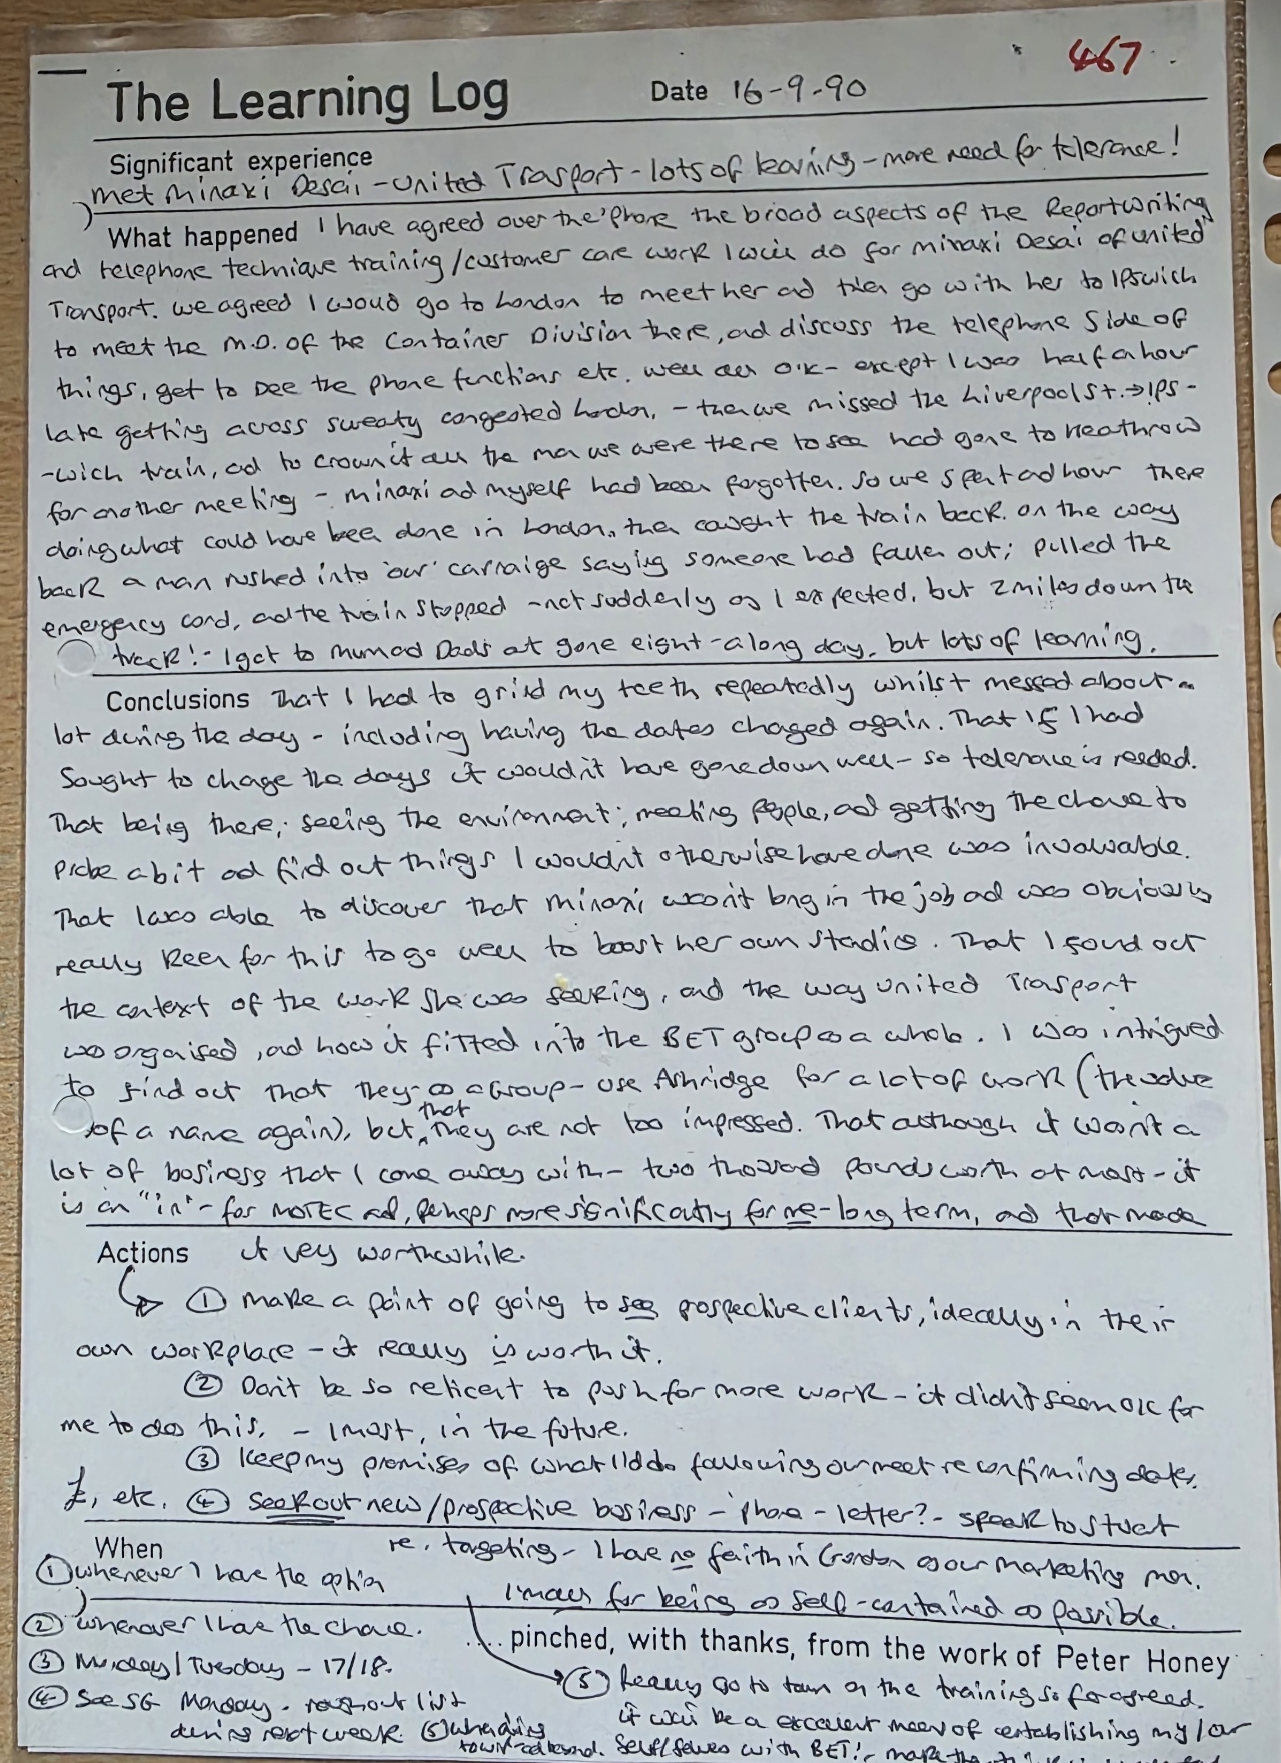 467
The Learning Log Date 16-9-90
Significant experience
met Minaxi Desai - United Trasport - lots of learning - more need for tolerance!
What happened I have agreed over the 'phone the broad aspects of the Report writing
and telephone technique training/customer care work I will do for Minaxi Desai of United
Transport. We agreed I woud go to London to meet her ad then go with her to Ipswich
to meet the M.D. of the Container Division there, ad discuss the telephone side of
things, get to see the phone functions etc. Well all O.K - except I was half a hour
late getting across sweaty congested London, - then we missed the Liverpool St. → IPS -
-wich train, ad to crown it all the man we were there to see had gone to Heathrow
for another meeting - Minaxi ad myself had been forgotten. So we spent ad hour there
doing what could have been done in London, then caught the train back. On the way
back a man rushed into 'our' carraige saying someone had fallen out; pulled the
emergency cord, ad the train stopped - not suddenly as I expected, but 2 miles down the
track! - I got to Mum ad Dad's at gone eight - a long day, but lots of learning.
Conclusions That I had to grind my teeth repeatedly whilst messed about a
lot during the day - including having the dates changed again. That if I had
sought to change the days it wouldn't have gone down well - so tolerance is needed.
That being there, seeing the environment; meeting people, ad getting the chance to
probe a bit ad find out things I wouldn't otherwise have done was invaluable.
That I was able to discover that Minaxi wasn't long in the job ad was obviously
really keen for this to go well to boost her own standing. That I found out
the context of the work she was seeking, and the way United Transport
was organised, ad how it fitted into the BET group as a whole. I was intrigued
to find out that they - as a Group - use Ashridge for a lot of work (the value
of a name again), but that they are not too impressed. That although it wasn't a
lot of business that I came away with - two thousand pounds worth at most - it
is an "in" - for MOTEC ad, perhaps more significantly for me - long term, ad that made
Actions it very worthwhile.
① Make a point of going to see prospective clients, ideally in their
own workplace - it really is worth it.
② Don't be so reticent to push for more work - it didn't seem OK for
me to do this. - I must, in the future.
③ Keep my promises of what I'd do following our meet re confirming dates,
£, etc. ④ Seek out new/prospective business - 'phone - letter? - speak to Stuart
re. targeting - I have no faith in Gordon as our marketing man.
I'm all for being as self-contained as possible.
When
① whenever I have the option
② whenever I have the chance.
③ Monday/Tuesday - 17/18.
④ See SG Monday. rough out list
during next week. ⑤
.... pinched, with thanks, from the work of Peter Honey
⑤ Really go to town on the training so far agreed.
it will be a excellent means of establishing my/our
self/selves with BET! - make the